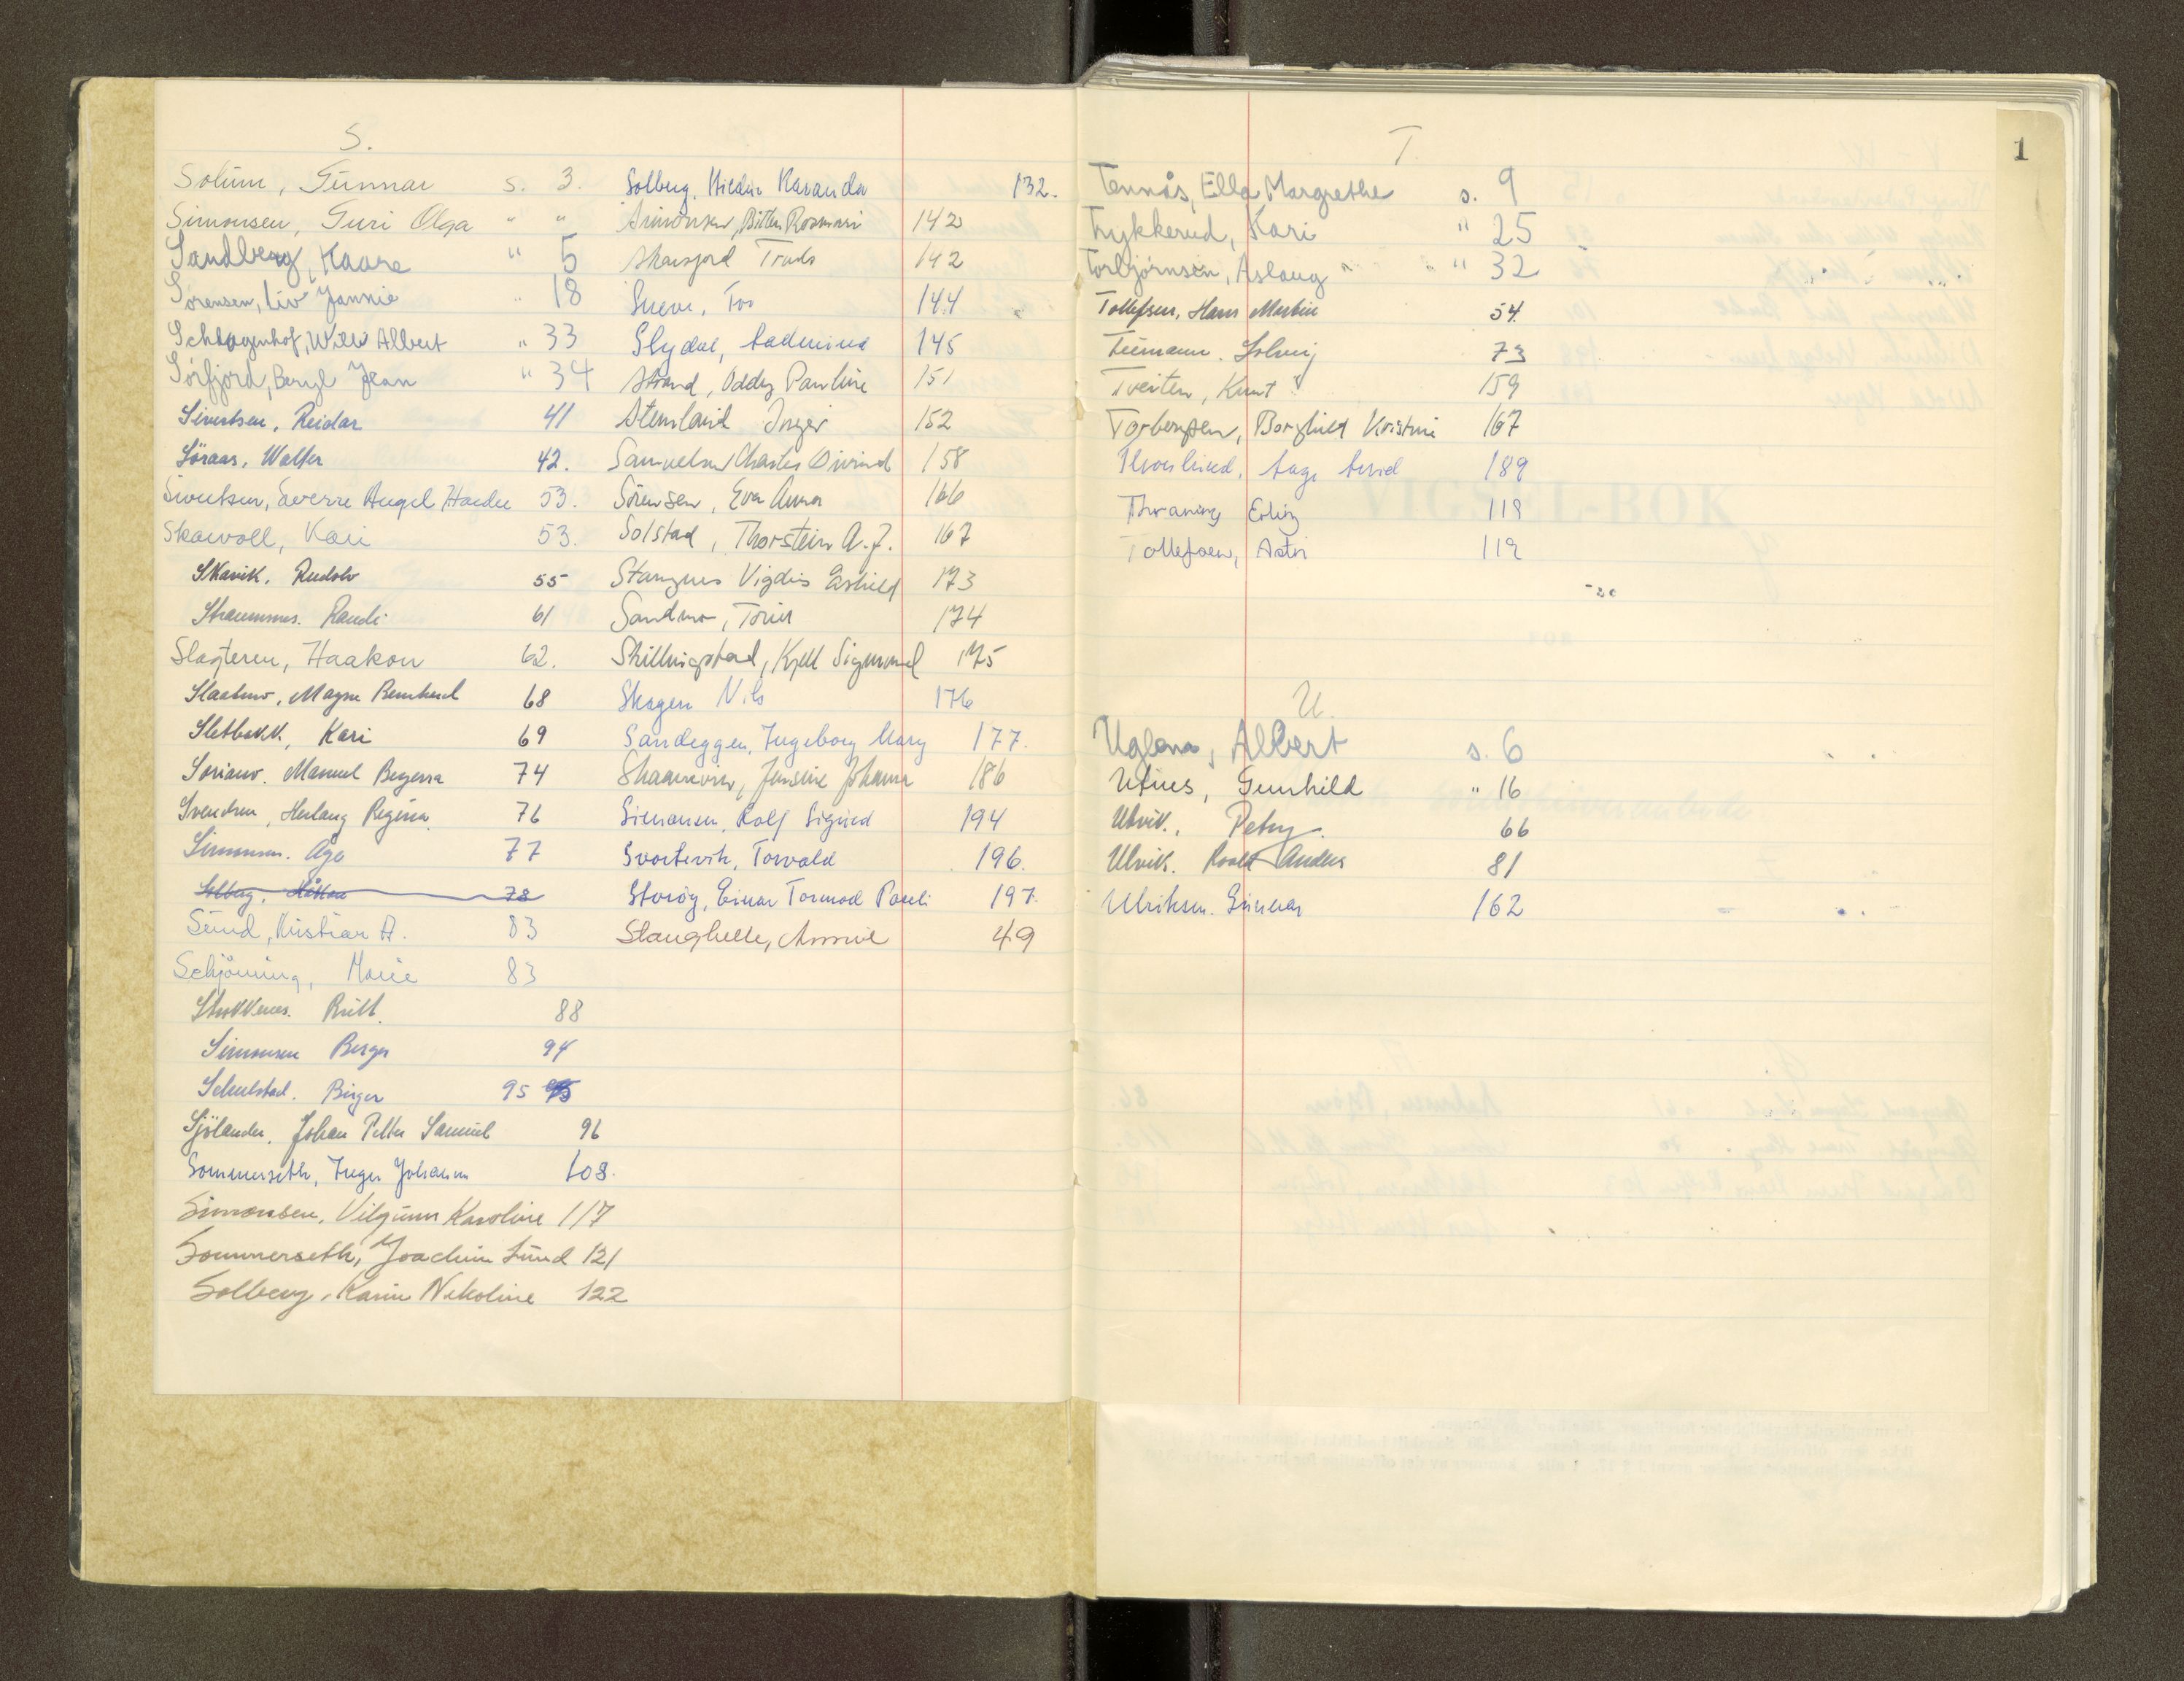 S.
Solum, Gunnar s. 3.
Simonsen, Guri Olga " "
Sandberg, Kaare " 5
Sørensen, Liv Jannie " 18
Schlagenhof, Willi Albert " 33
Sørfjord, Beryl Jean " 34
Sivertsen, Reidar 41
Söraas, Walter 42.
Sivertsen, Sverre Angel Haedee 53.
Skavoll, Kari 53.
Skavik. Rudolv 55
Straumsnes. Randi 61
Slagteren, Haakon 62.
Slaatmo, Magne Bernhard 68
Sletbakk, Kari 69
Soriano. Manuel Beyerra 74
Svendsen, Herlaug Regina 76
Simonsen. Åge 77
Solberg. Håkon 78
Sund, Kristian A. 83
Schjönning, Marie 83
Stokkenes. Britt. 88
Simonsen Berger 94
Schulstad. Birger 95
Sjölander. Johan Petter Samuel 96
Sommerseth, Inger Johanne 108.
Simonsen, Vilgunn Karoline 117
Sommerseth, Joachim Lund 121
Solberg, Karin Nikoline 122
Solberg, Hildur Karanda 132.
Simonsen, Bitten Rosmari 142
Skarsfjord Truds 142
Sneve, Tor 144
Slydal, 145
Strand, Oddny Pauline 151
Stensland Inger 152
Samuelsen Charles Oivind 158
Sörensen, Eva Anna 166
Solstad, Thorstein A. J. 167
Stangnes Vigdis Eshild 173
Sandmo, Torill 174
Skillingstad, Kjell Sigmund 175
Skagen Nils 176
Sandeggen, Ingeborg Mary 177.
Jensine Johanna 186
Simonsen, Rolf Sigurd 194
Svartevik, Torvald 196.
Storöy, Einar Tormod Pauli 197.
Slanghelle, Annie 49
1
T.
Tennås, Ella Margrethe s. 9
Trykkerud, Kari " 25
Torbjørnsen, Aslaug " " " 32
Tollefsen, Hans Martin 54.
Tiemann. Solveig 73
Tveiten, Knut 159
Torbergsen, Borghild Kristine 167
189
Thraning Erling 119
Tollefsen, Astri 119
U.
Uglenes, Albert s. 6
Utnes, Gunhild " 16
Ulvik., Petny. 66
Ulvik. Roald Anders 81
Ulriksen. Gunnar 162